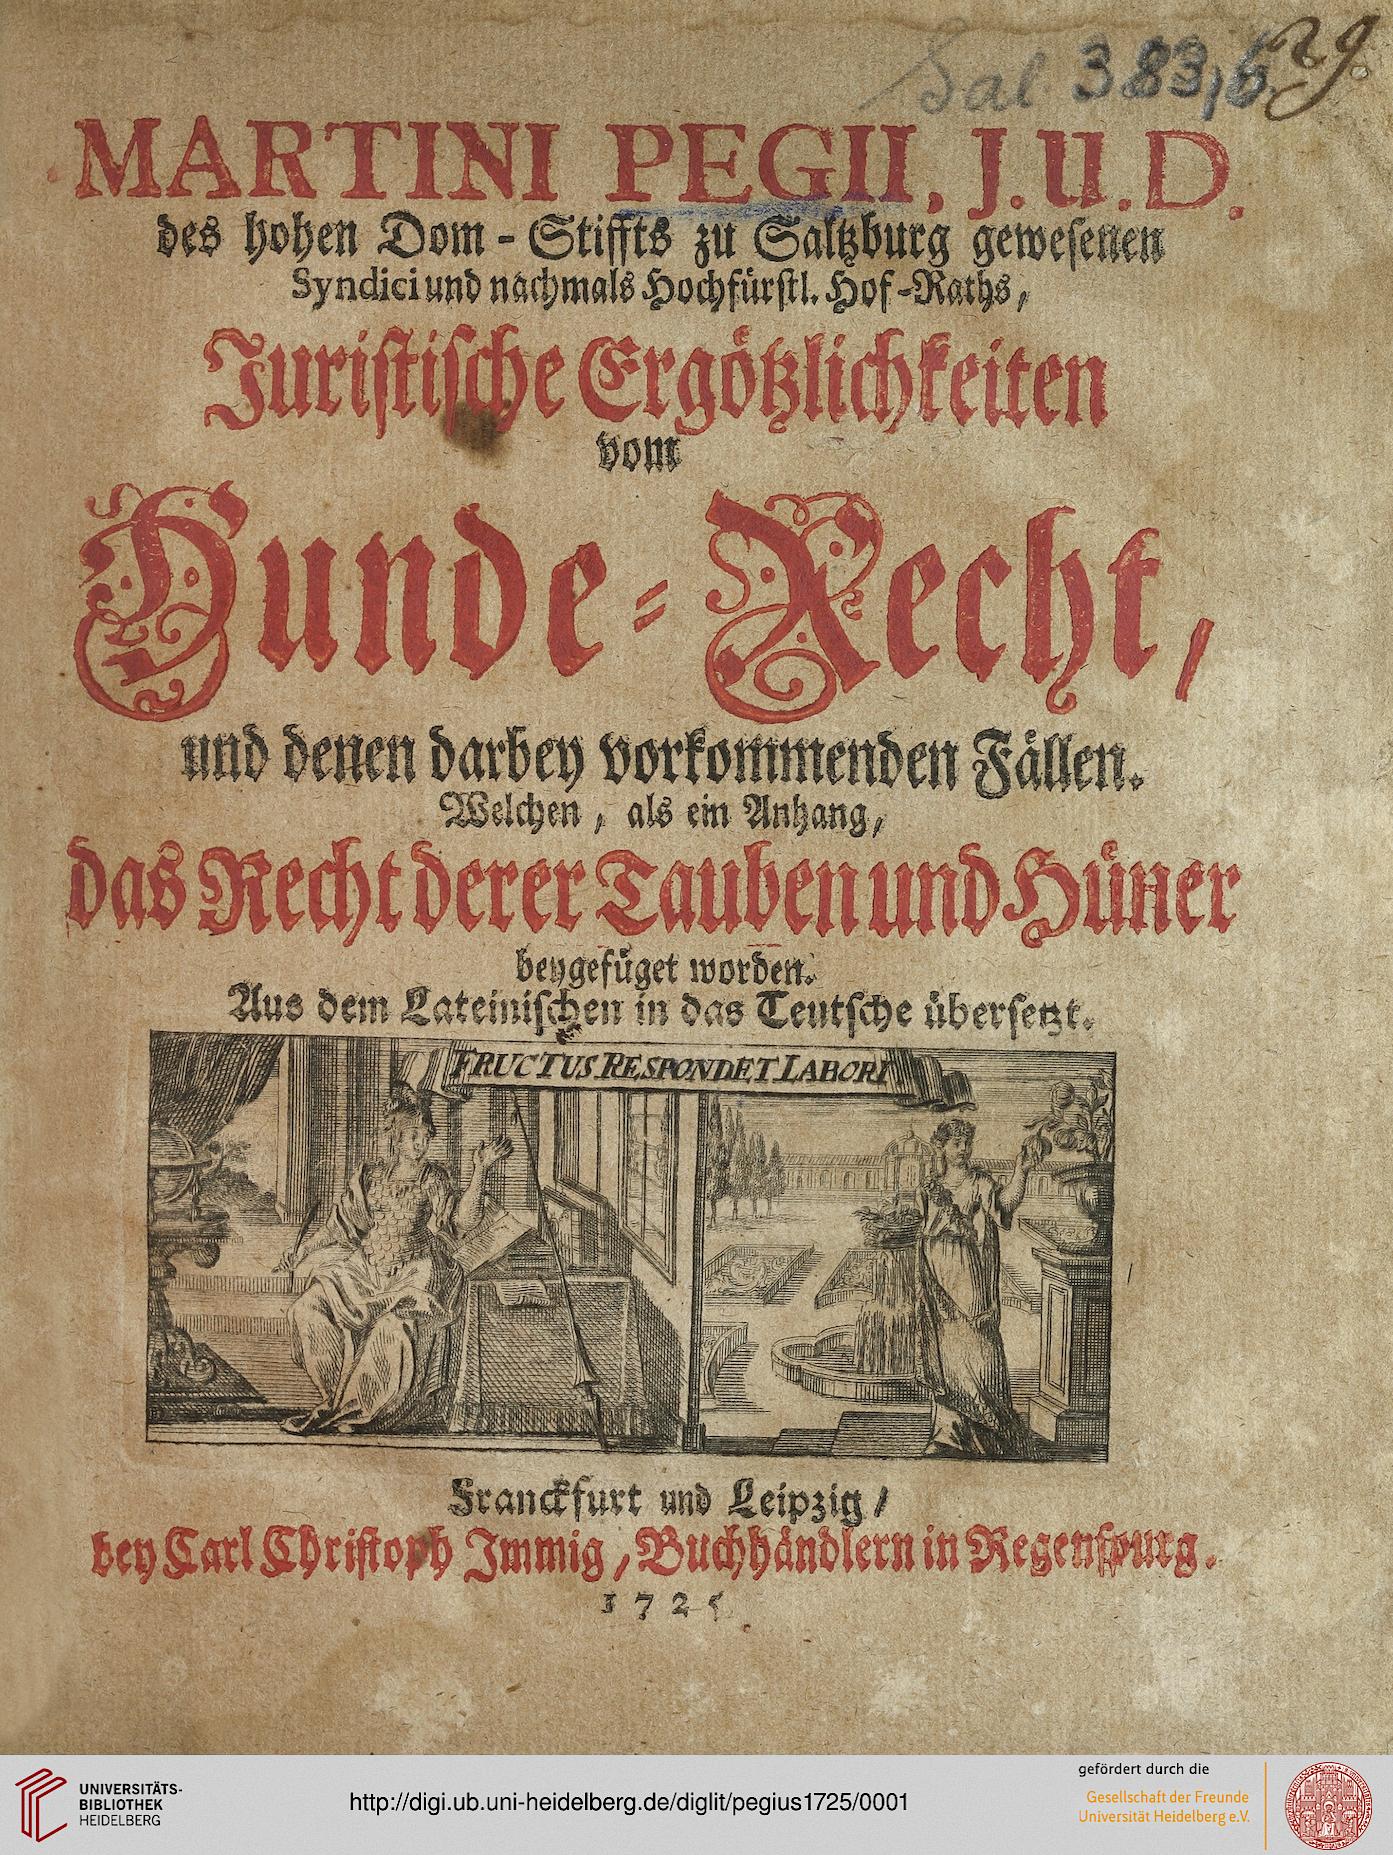 Sal 383,6. 29.
MARTINI PEGII, J.U.D.
des hohen Dom-Stiffts zu Saltzburg gewesenen
Syndici und nachmals Hochfürstl. Hof-Raths,
Juristische Ergötzlichkeiten
vom
Hunde-Recht,
und denen darbey vorkommenden Fällen.
Welchen, als ein Anhang,
das Recht derer Tauben und Hüner
beygefüget worden.
Aus dem Lateinischen in das Teutsche übersetzt.
FRUCTUS RESPONDET LABORI
Franckfurt und Leipzig /
bey Carl Christoph Immig, Buchhändlern in Regenspurg.
1725
UNIVERSITÄTS-
BIBLIOTHEK
HEIDELBERG
http://digi.ub.uni-heidelberg.de/diglit/pegius1725/0001
gefördert durch die
Gesellschaft der Freunde
Universität Heidelberg e.V.